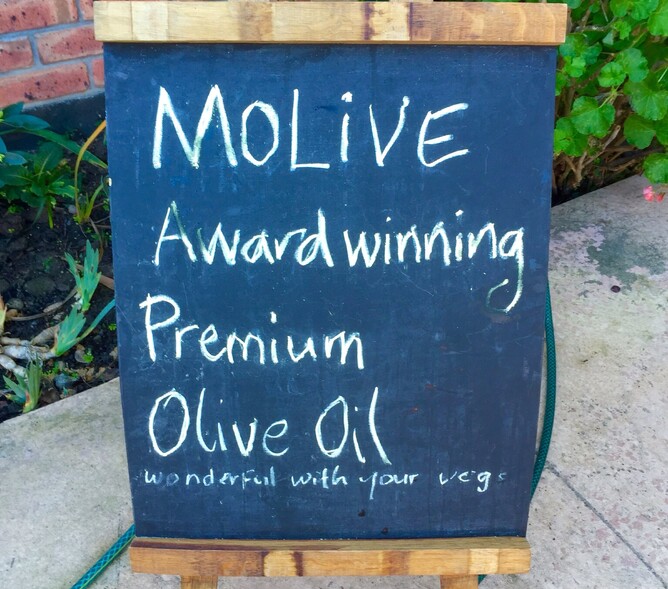 MOLiVE
Award winning
Premium
Olive Oil
wonderful with your vegs